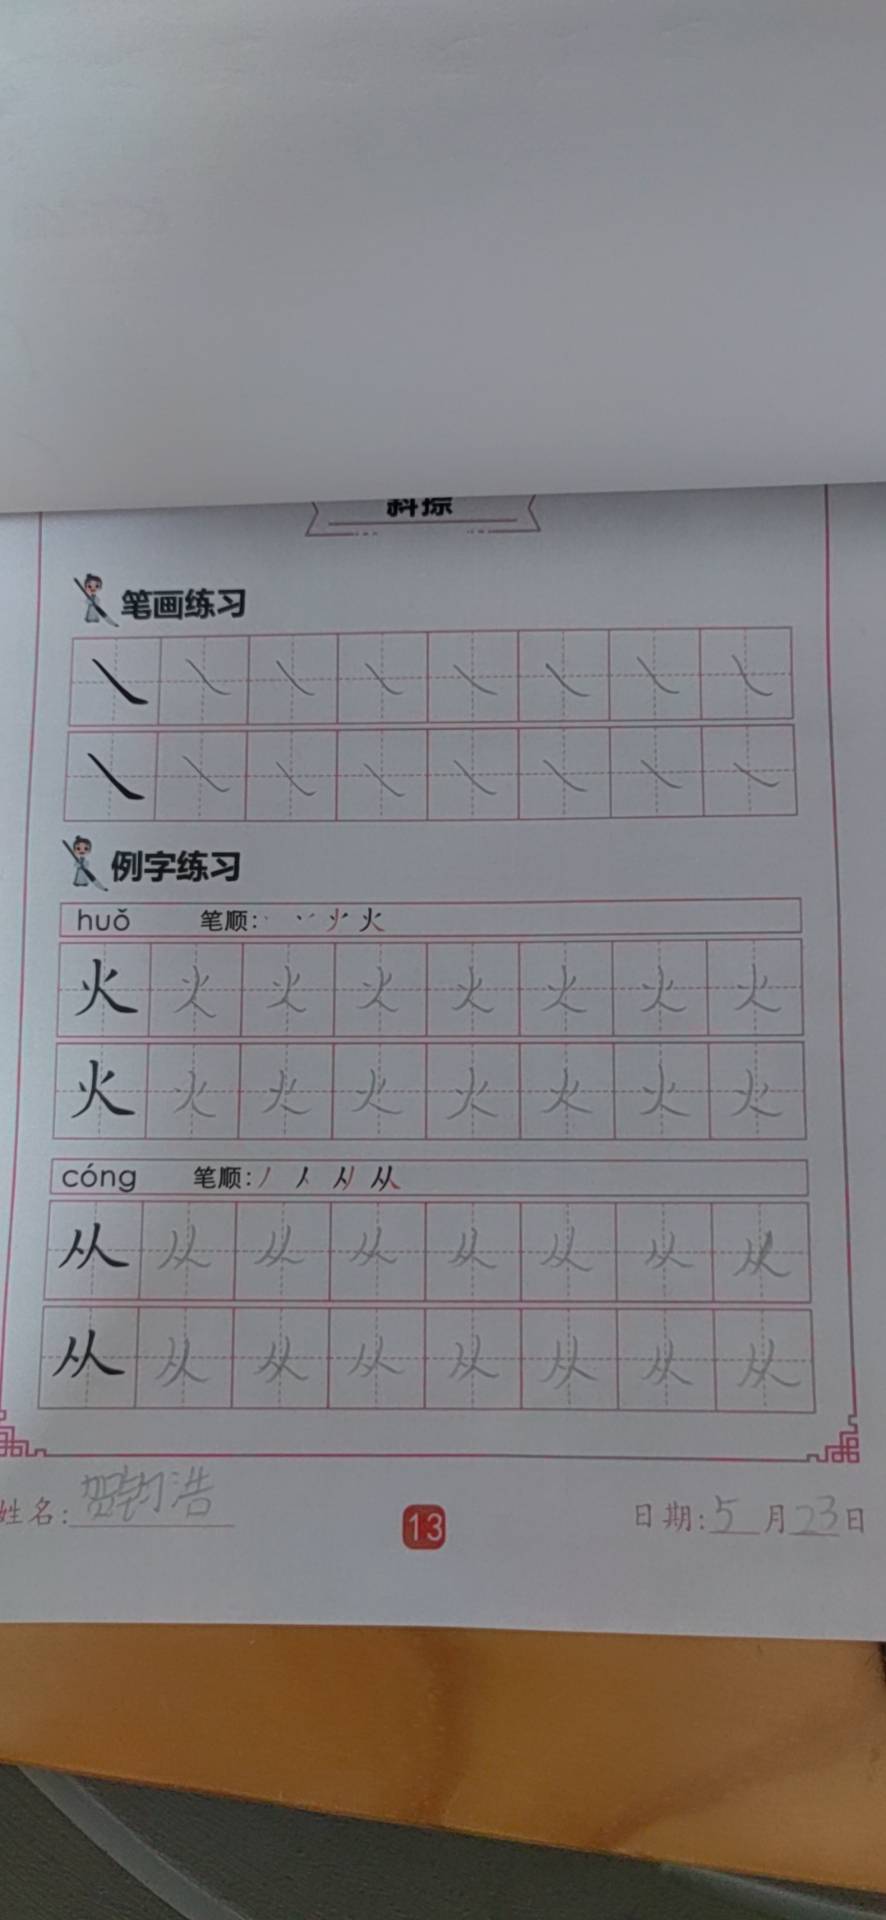 斜捺
笔画练习
例字练习
huǒ 笔顺: 火
火 火 火 火 火 火 火 火
火 火 火 火 火 火 火 火
cóng 笔顺: 丿 从
从 从 从 从 从 从 从 从
从 从 从 从 从 从 从 从
姓名: 贺钧浩 13 日期: 5 月 23 日